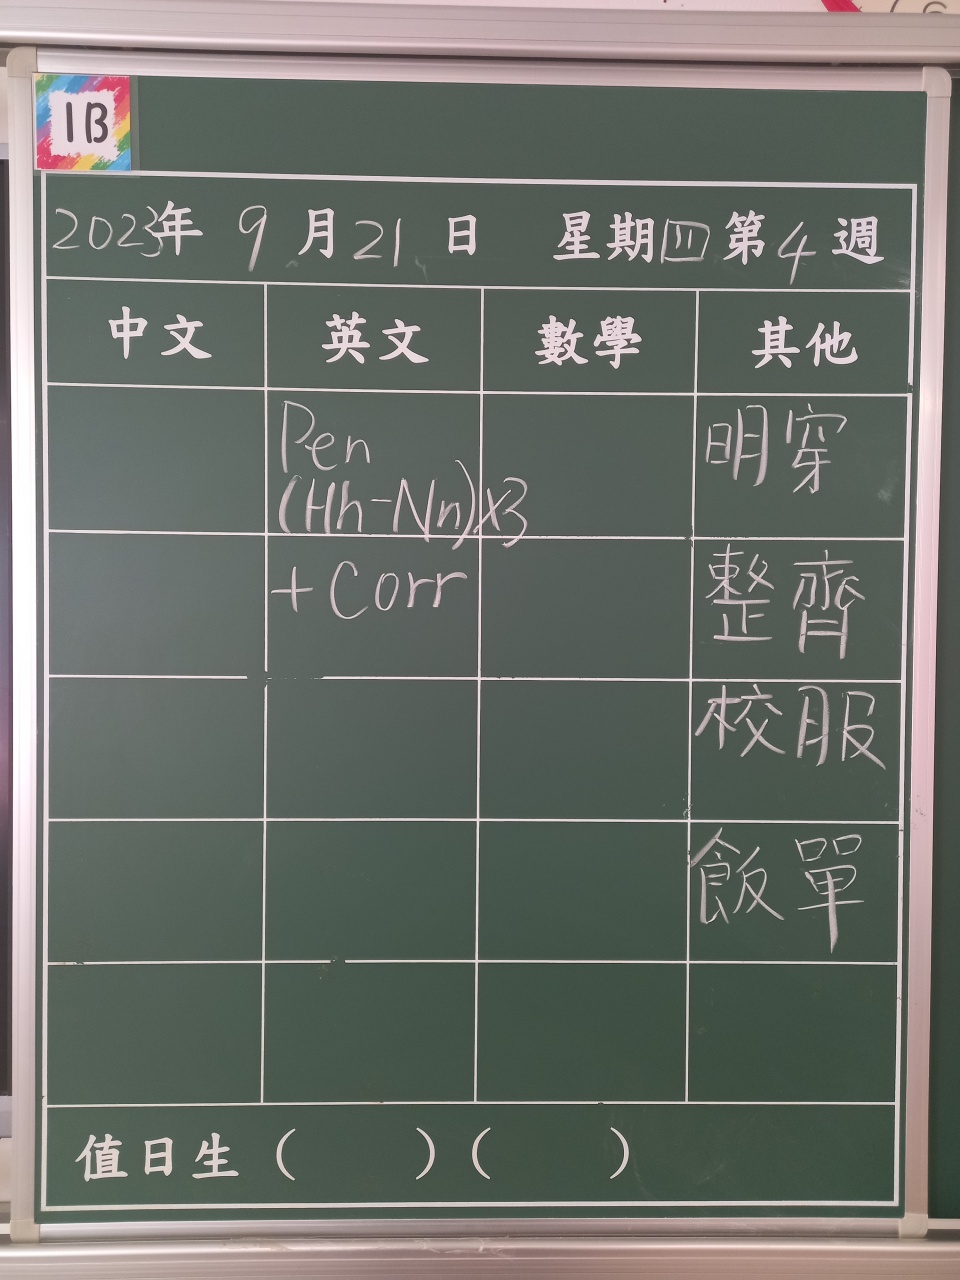 1B
2023年 9月21日 星期四 第4週
中文 英文 數學 其他
Pen
(Hh-Nn)x3
明穿
+ Corr
整齊
校服
飯單
值日生 ( ) ( )